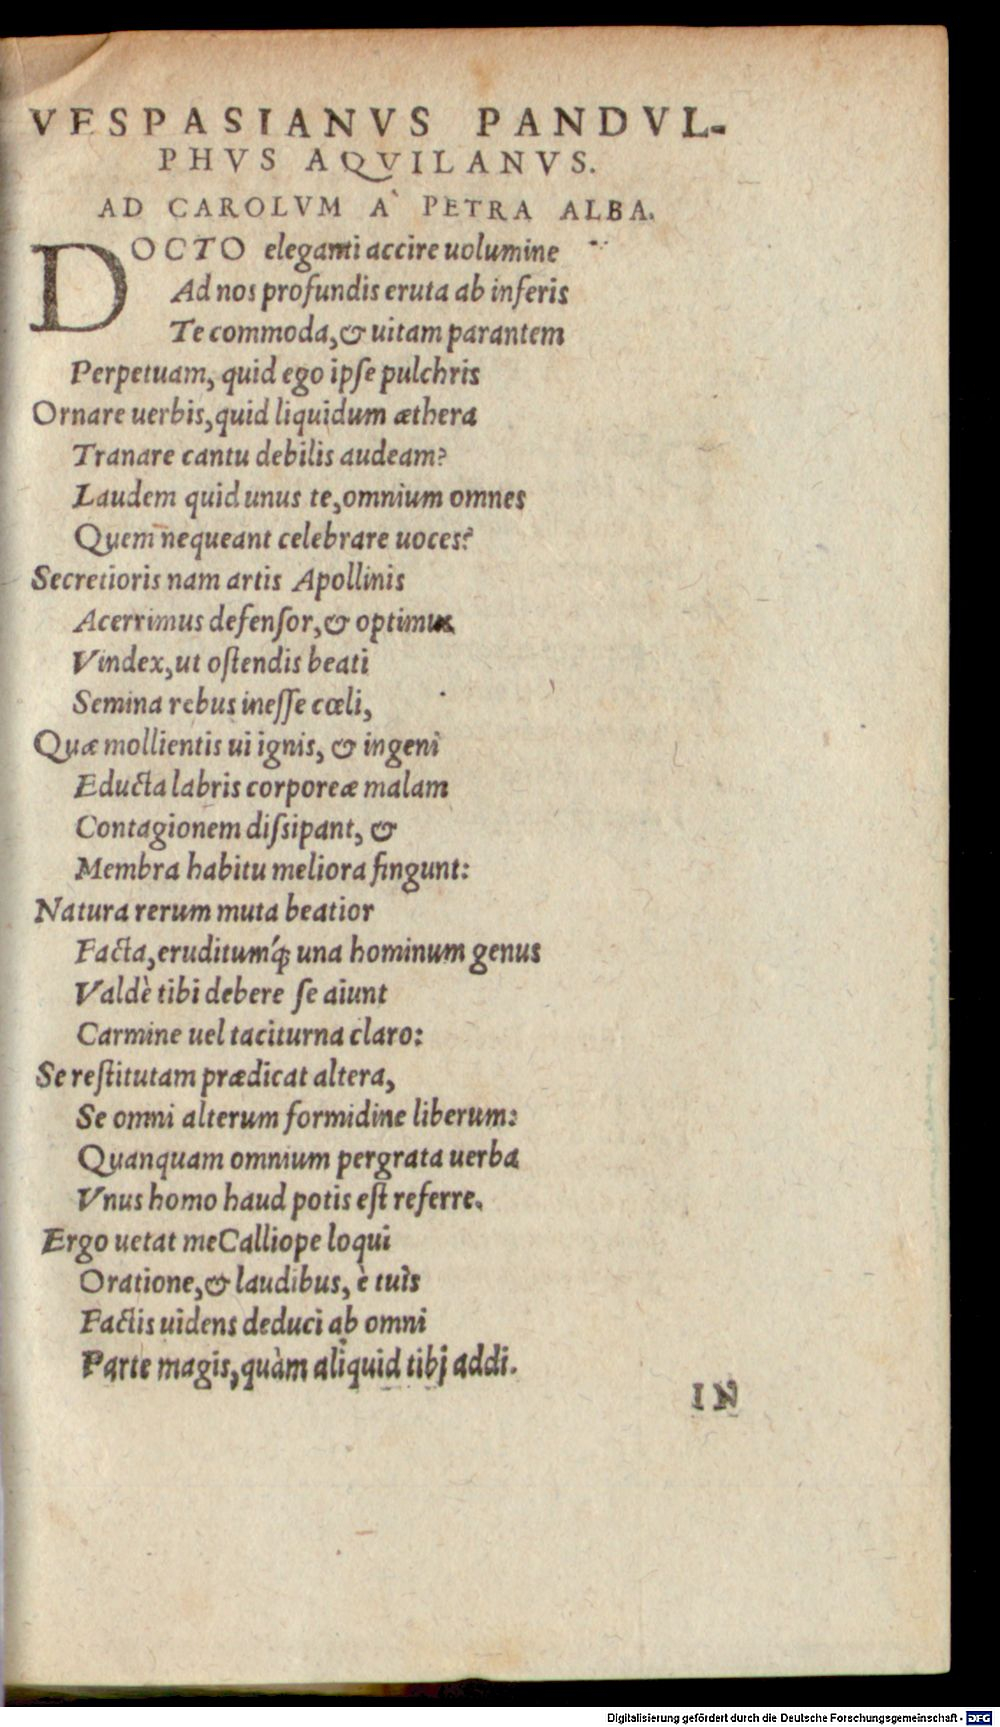 VESPASIANVS PANDVL-
PHVS AQVILANVS.
AD CAROLVM A` PETRA ALBA.
DOCTO eleganti accire uolumine
Ad nos profundis eruta ab inferis
Te commoda, & uitam parantem
Perpetuam, quid ego ipſe pulchris
Ornare uerbis, quid liquidum æthera
Tranare cantu debilis audeam?
Laudem quid unus te, omnium omnes
Quem nequeant celebrare uoces?
Secretioris nam artis Apollinis
Acerrimus defenſor, & optimus
Vindex, ut oſtendis beati
Semina rebus ineſſe cœli,
Quæ mollientis ui ignis, & ingenì
Educta labris corporeæ malam
Contagionem diſsipant, &
Membra habitu meliora fingunt:
Natura rerum muta beatior
Facta, eruditumq́; una hominum genus
Valdè tibi debere ſe aiunt
Carmine uel taciturna claro:
Se reſtitutam prædicat altera,
Se omni alterum formidine liberum:
Quanquam omnium pergrata uerba
Vnus homo haud potis eſt referre.
Ergo uetat me Calliope loqui
Oratione, & laudibus, è tuìs
Factis uidens deduci ab omni
Parte magis, quàm aliquid tibi addi.
IN
Digitalisierung gefördert durch die Deutsche Forschungsgemeinschaft - DFG